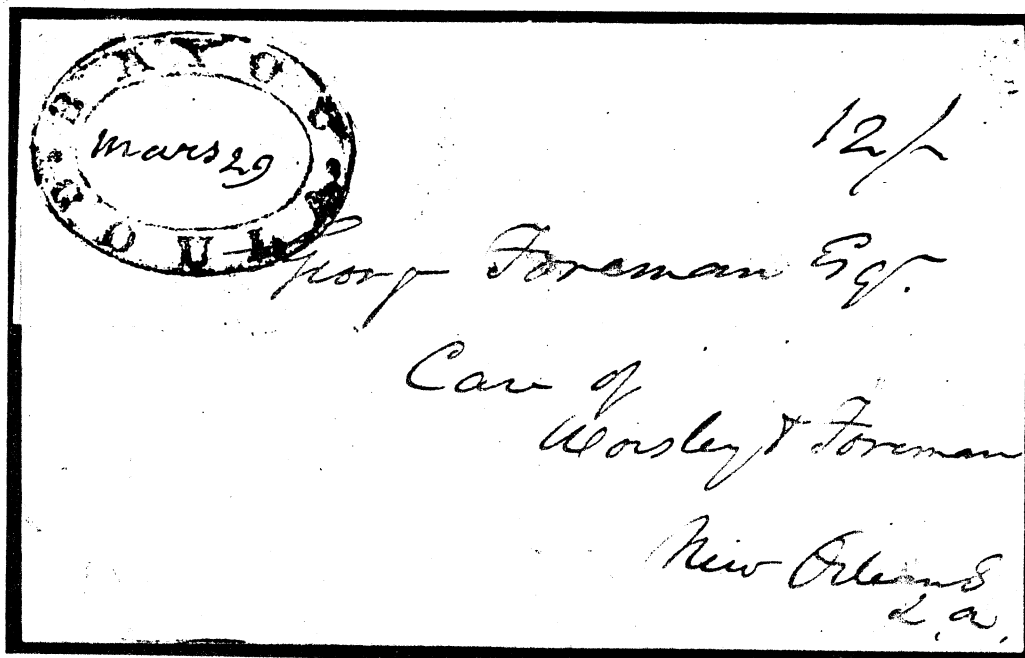 BAYOU
GOULA
mars 29
12/-
George Foreman Esqr.
Care of
Worsley & Foreman
New Orleans
La.